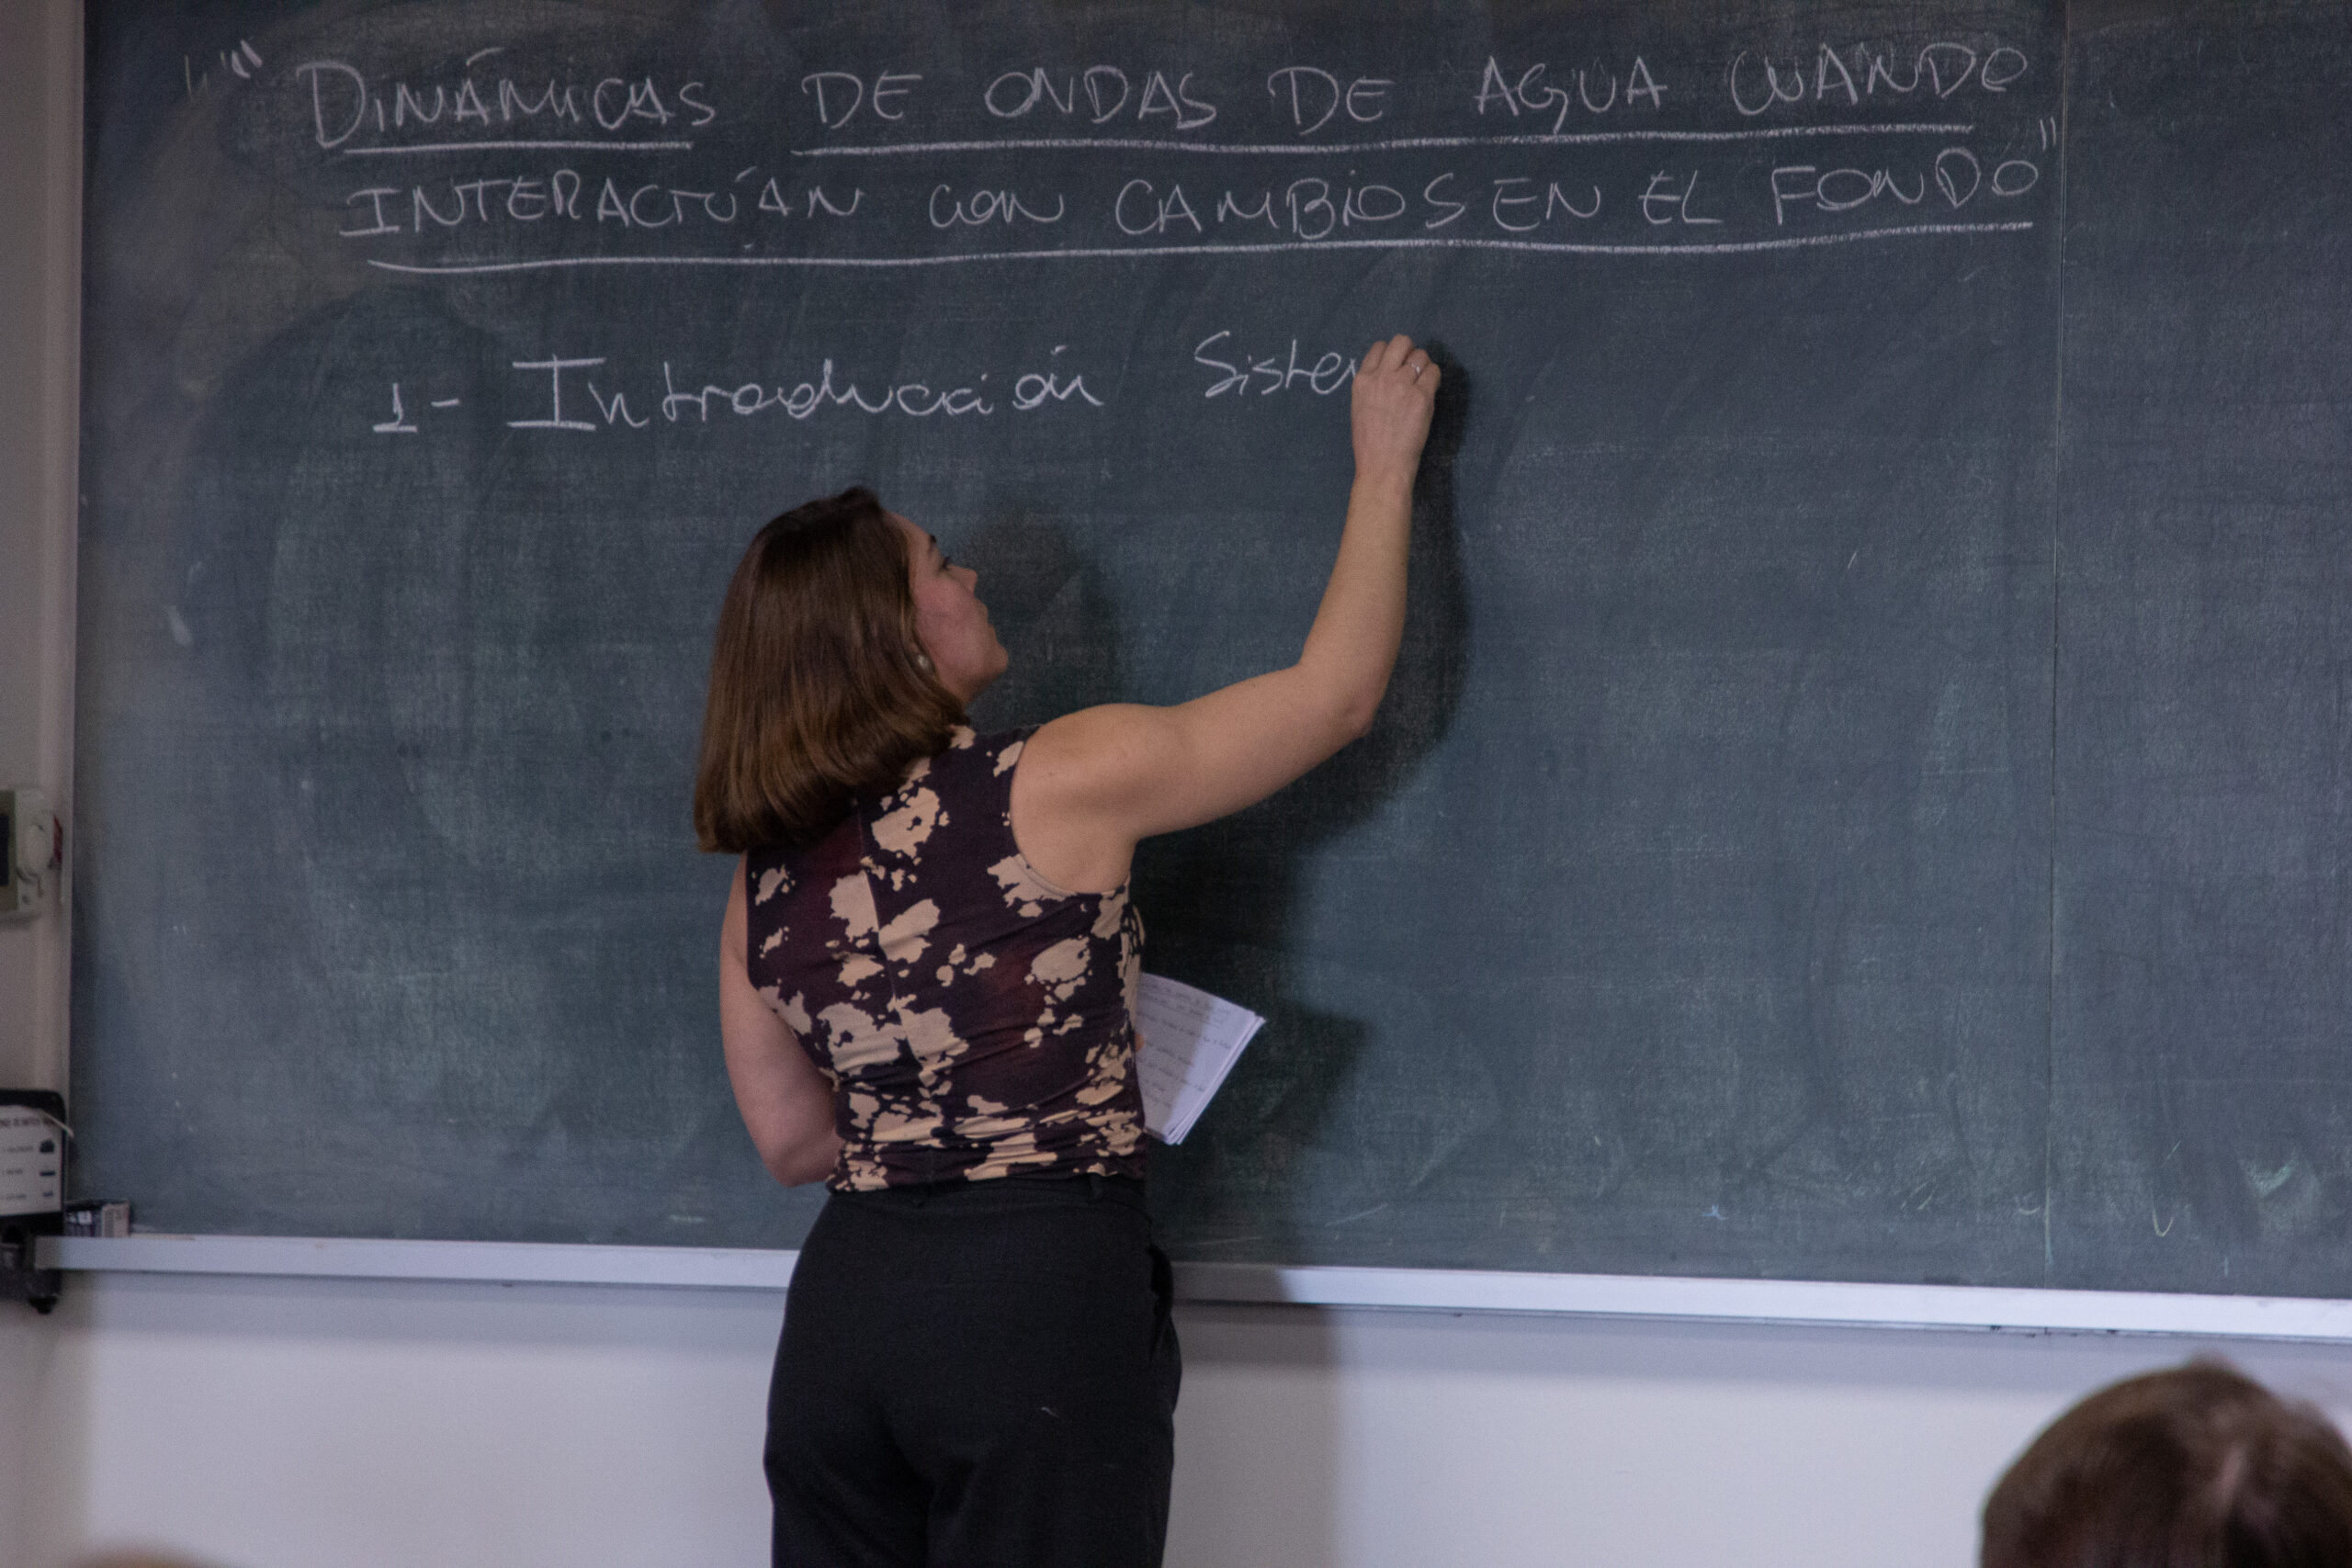 "DINÁMICAS DE ONDAS DE AGUA CUANDO
INTERACTÚAN CON CAMBIOS EN EL FONDO"
1- Introducción Sistem